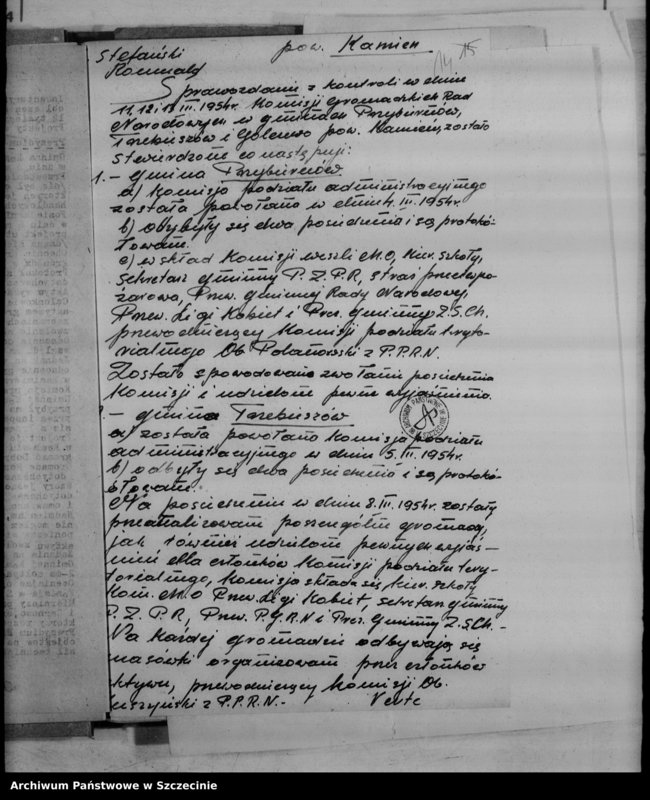 Stefański pow. Kamień
Romuald 14 15
Sprawozdanie z kontroli w dniu
11, 12 i 13 III. 1954r. Komisji Gromadzkich Rad
Narodowych w gminach Przybiernów,
Trzebuszów i Golczewo pow. Kamień, zostało
stwierdzone co następuje:
1. – gmina Przybiernów.
a) Komisja podziału administracyjnego
została powołana w dniu 4. III. 1954r.
b) odbyły się dwa posiedzenia i są protokó-
łowane.
c) w skład Komisji weszli M.O, Kier. szkoły,
sekretarz gminny P.Z.P.R, straż przeciwpo-
żarowa, Prze. Gminnej Rady Narodowej,
Przew. Ligi Kobiet i Prez. Gminny Z.S.Ch.
przewodniczący Komisji podziału teryto-
rialnego Ob. Polanowski z P.P.R.N.
Zostało spowodowane zwołanie posiedzenia
Komisji i udzielono pewne wyjaśnienia.
– gmina Trzebuszów
a) została powołana Komisja podziału
administracyjnego w dniu 5. III. 1954r.
b) odbyły się dwa posiedzenia i są protokó-
ółowane.
Na posiedzeniu w dniu 8. III. 1954r. zostały
przeanalizowane poszczególne gromady,
jak również udzielono pewnych wyjaś-
nień dla członków Komisji podziału tery-
torialnego, Komisja składa się kier. szkoły
Kom. M.O Przew. Ligi Kobiet, sekretarz gminny
P.Z.P.R, Przew. P.G.R.N i Prez. Gminny Z.S.Ch. –
Na każdej gromadzie odbywają się
masówki organizowane przez członków
aktywu, przewodniczący Komisji Ob.
z P.P.R.N. – Verte
Archiwum Państwowe w Szczecinie